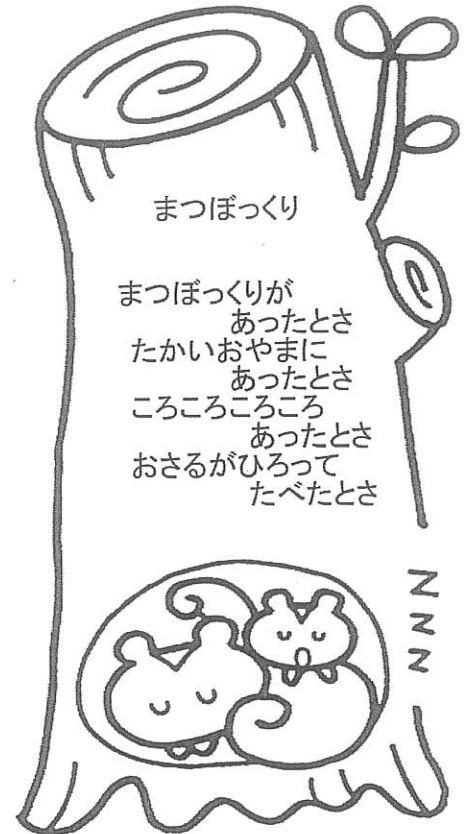 まつぼっくり
まつぼっくりが
あったとさ
たかいおやまに
あったとさ
ころころころころ
あったとさ
おさるがひろって
たべたとさ
Z
Z
Z